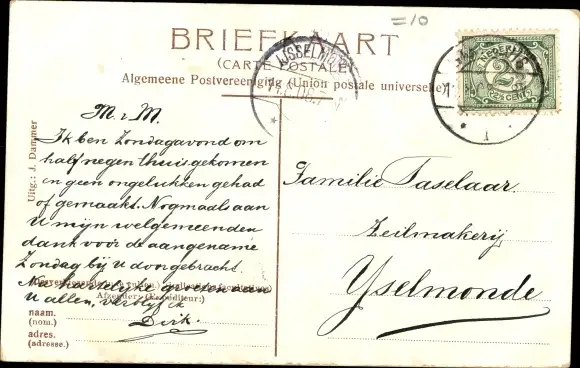 =10
BRIEFKAART
(CARTE POSTALE)
Algemeene Postvereeniging (Union postale universelle)
IJSSELMO
NEDERLAND
2½
CENT
Uitg.: J. Dammer
M. & M.
Ik ben Zondagavond om
half negen thuisgekomen
en geen ongelukken gehad
of gemaakt. Nogmaals aan
U mijn welgemeenden
dank voor de aangename
Zondag bij U doorgebracht.
Na hartelijke groeten aan
U allen, verblijf ik
Dirk.
Afzender: (Expéditeur:)
naam.
(nom.)
adres.
(adresse.)
Familie Taselaar
Zeilmakerij,
Yselmonde